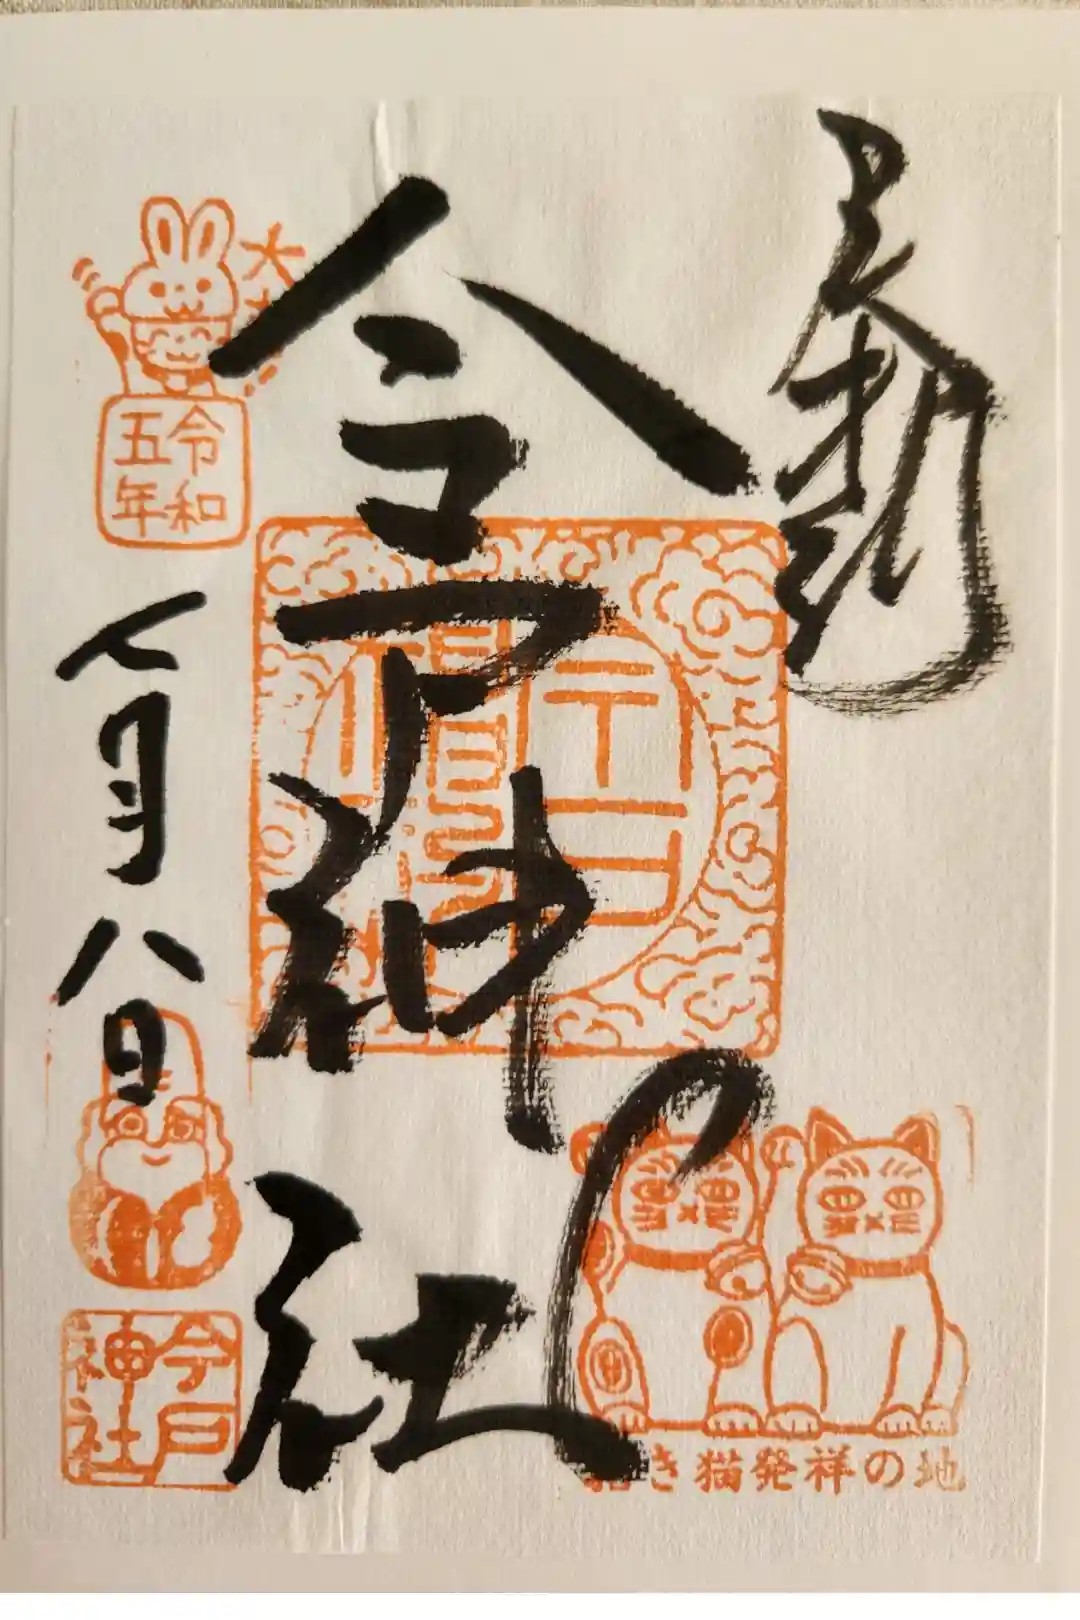 奉拝
今戸神社
令和
五年
七月八日
今戸
神社
招き猫発祥の地